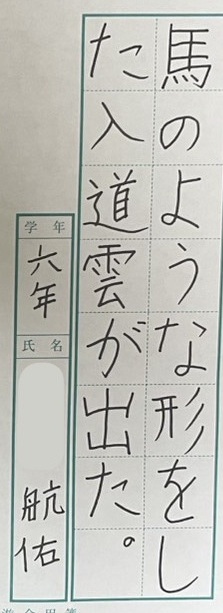 馬のような形をし
た入道雲が出た。
学年
六年
氏名
航佑